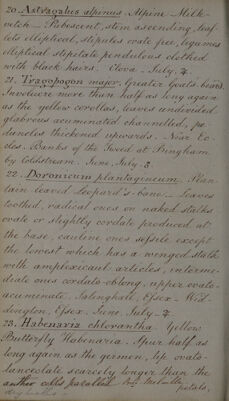 20. Astragalus alpinus. Alpine Milk-
vetch — Pubescent, stem ascending, leaf-
lets elliptical, stipules ovate free, legumes
elliptical stipitate pendulous clothed
with black hairs. Clova. July. ♃.
21. Tragopogon major. Greater Goat's beard
Involucre more than half as long again
as the yellow corollas, leaves undivided
glabrous acuminated channelled, pe-
duncles thickened upwards. Near Ec-
cles. Banks of the Tweed at
by Coldstream. June, July.
22. Doronicum plantagineum. Plan-
tain leaved Leopard's-bane. — Leaves
toothed, radical ones on naked stalks
ovate or slightly cordate produced at
the base, cauline ones sessile except
the lowest which has a winged stalk
with amplexicaul auricles, interme-
diate ones cordate-oblong, upper ovate-
acuminate. Essex - Wid-
dington, Essex. June, July. ♃
23. Habenaria chlorantha. Yellow
Butterfly Habenaria. Spur half as
long again as the germen, lip ovate-
lanceolate scarcely longer than the
anther cells parallel. petals,